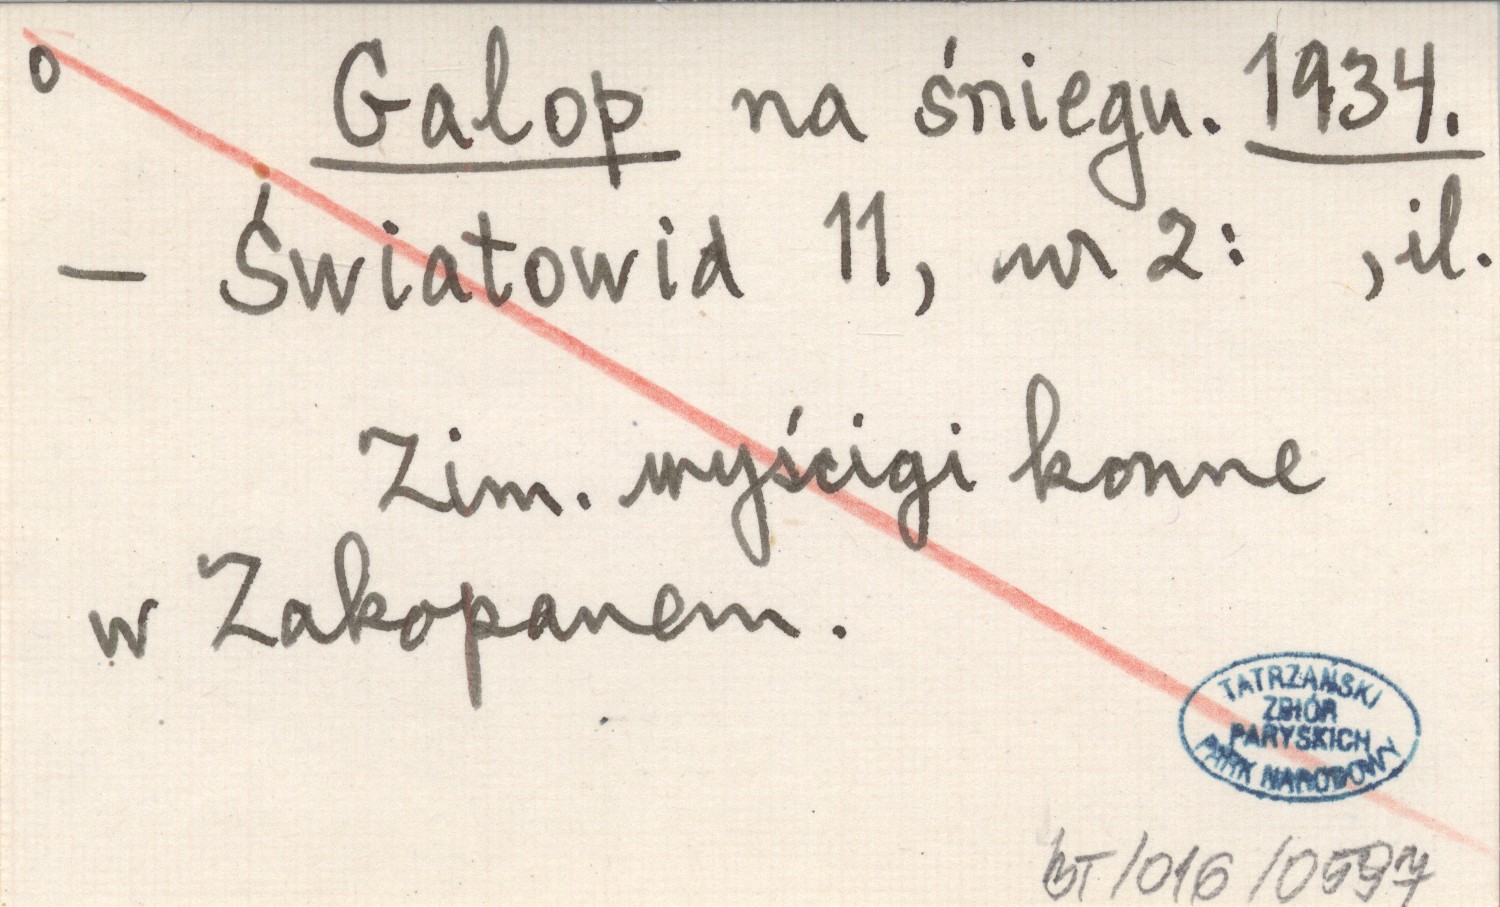 o Galop na śniegu. 1934.
— Światowid 11, nr 2: , il.
Zim. wyścigi konne
w Zakopanem.
TATRZAŃSKI
ZBIÓR
PARYSKICH
PARK NARODOWY
BT/016/0597